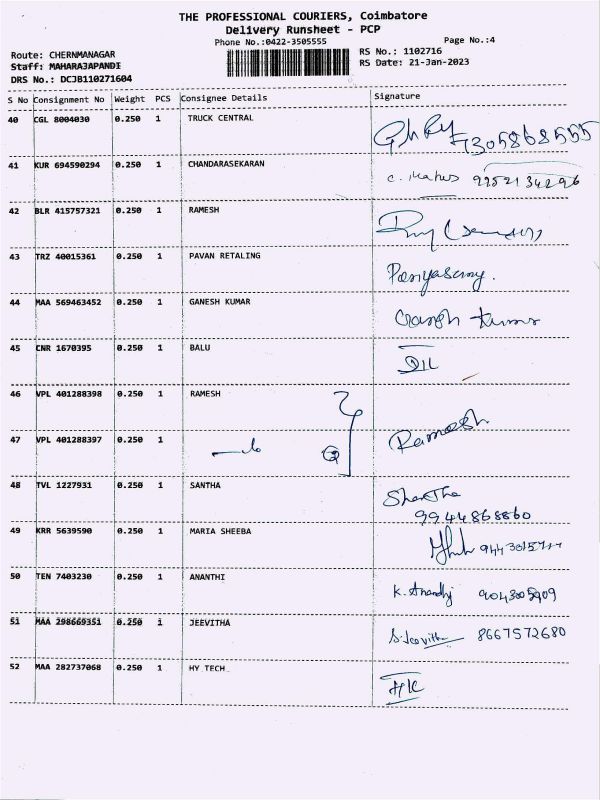 THE PROFESSIONAL COURIERS, Coimbatore
Delivery Runsheet - PCP
Phone No.:0422-3505555 Page No.:4
Route: CHERNMANAGAR RS No.: 1102716
Staff: MAHARAJAPANDI RS Date: 21-Jan-2023
DRS No.: DCJB110271604
S No Consignment No Weight PCS Consignee Details Signature
40 CGL 8004030 0.250 1 TRUCK CENTRAL 7305868555
41 KUR 694590294 0.250 1 CHANDARASEKARAN 9952134296
42 BLR 415757321 0.250 1 RAMESH
43 TRZ 40015361 0.250 1 PAVAN RETALING
44 MAA 569463452 0.250 1 GANESH KUMAR Ganesh Kumar
45 CNR 1670395 0.250 1 BALU
46 VPL 401288398 0.250 1 RAMESH
47 VPL 401288397 0.250 1 Ramesh
48 TVL 1227931 0.250 1 SANTHA Shantha
9944868860
49 KRR 5639590 0.250 1 MARIA SHEEBA
50 TEN 7403230 0.250 1 ANANTHI K. Anandhi
51 MAA 298669351 0.250 1 JEEVITHA S. Jeevitha 8667572680
52 MAA 282737068 0.250 1 HY TECH